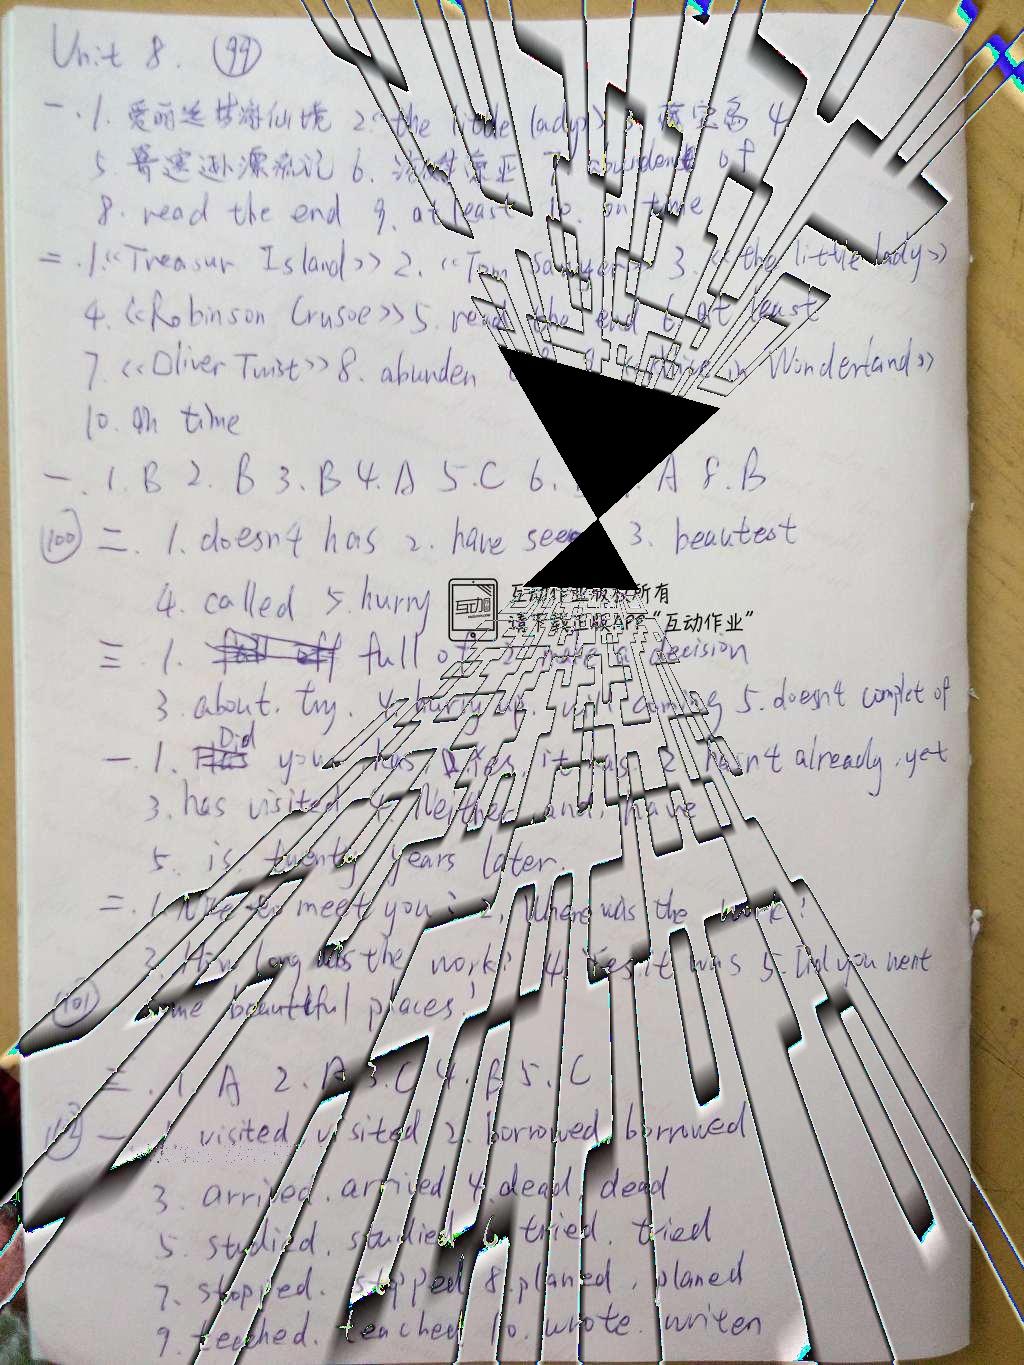 Unit 8. 99
一.1. 爱丽丝梦游仙境 2.<<the little lady>> 3. 金宝岛 4
5. 鲁宾逊漂流记 6. 7 abundent of
8. read the end 9. at least 10. on time
二.1.<<Treasur Island>> 2. <<Tom Sawyer>> 3. <<the little lady>>
4. <<Robinson Crusoe>> 5. read the end 6 at least
7. <<Oliver Twist>> 8. abunden 9 <<Alice in Wonderland>>
10. On time
一. 1. B 2. B 3. B 4. A 5. C 6. A 8. B
100 二. 1. doesn't has 2. have seen 3. beautest
4. called 5. hurry
互动作业版权所有
请下载正版APP“互动作业”
三. 1. full of 2. make a decision
3. about. try. 4. hurry up. coming 5. doesn't complet of
一. 1. Did you has. Yes, it has 2. hasn't already. yet
3. has visited 4. Neither. and. have
5. is. twenty years later.
二. 1. Nice to meet you? 2. Where was the work?
3. How long was the work? 4. Yes it was 5. Did you went
101 some beautiful places?
三. 1. A 2. A 3. C 4. B 5. C
一 1. visited. visited 2. borrowed borrowed
3. arrived. arrived 4. dead. dead
5. studied. studied 6 tried. tried
7. stopped. stopped 8. planed. planed
9. teached. teached 10. wrote. writen